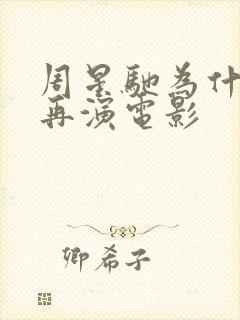 周星馳為什
再演電影
卿希子